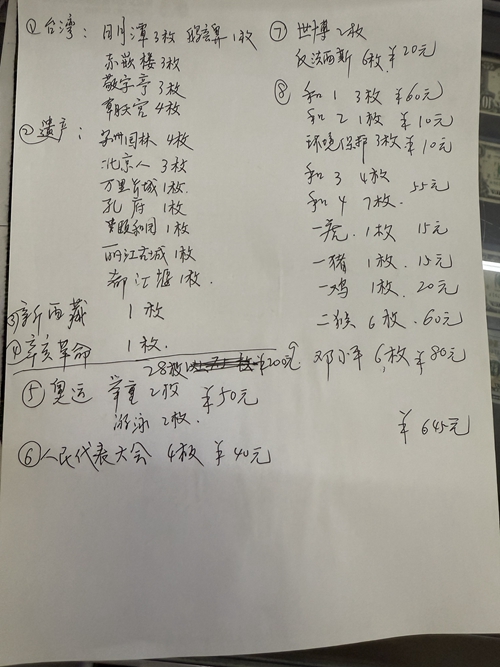 ① 台湾: 日月潭3枚 鹅銮鼻1枚
赤嵌楼3枚
敬字亭3枚
朝天宫4枚
② 遗产: 苏州园林4枚
北京人3枚
万里长城1枚.
孔府1枚
颐和园1枚
丽江古城1枚
都江堰1枚.
③ 新西藏 1枚
④ 辛亥革命 1枚.
28枚 ¥200元
⑤ 奥运 举重2枚 ¥50元
游泳2枚.
⑥ 人民代表大会 4枚 ¥40元
⑦ 世博2枚
反法西斯6枚 ¥20元
⑧ 和1 3枚 ¥60元
和2 1枚 ¥10元
环境保护3枚 ¥10元
和3 4枚
和4 7枚. 55元
一虎.1枚 15元
一猪 1枚.15元
一鸡 1枚.20元
二猴 6枚.60元
邓小平6枚 ¥80元
¥645元